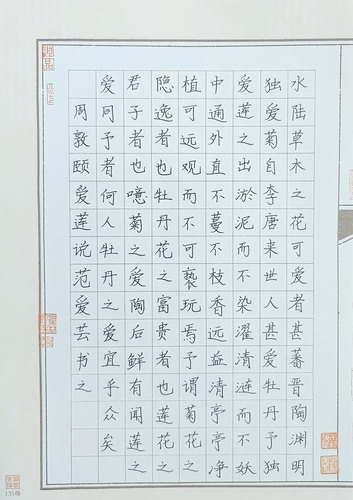 水陆草木之花可爱者甚蕃晋陶渊明
独爱菊自李唐来世人甚爱牡丹予独
爱莲之出淤泥而不染濯清涟而不妖
中通外直不蔓不枝香远益清亭亭净
植可远观而不可亵玩焉予谓菊花之
隐逸者也牡丹花之富贵者也莲花之
君子者也噫菊之爱陶后鲜有闻莲之
爱同予者何人牡丹之爱宜乎众矣
周敦颐爱莲说范爱芸书之